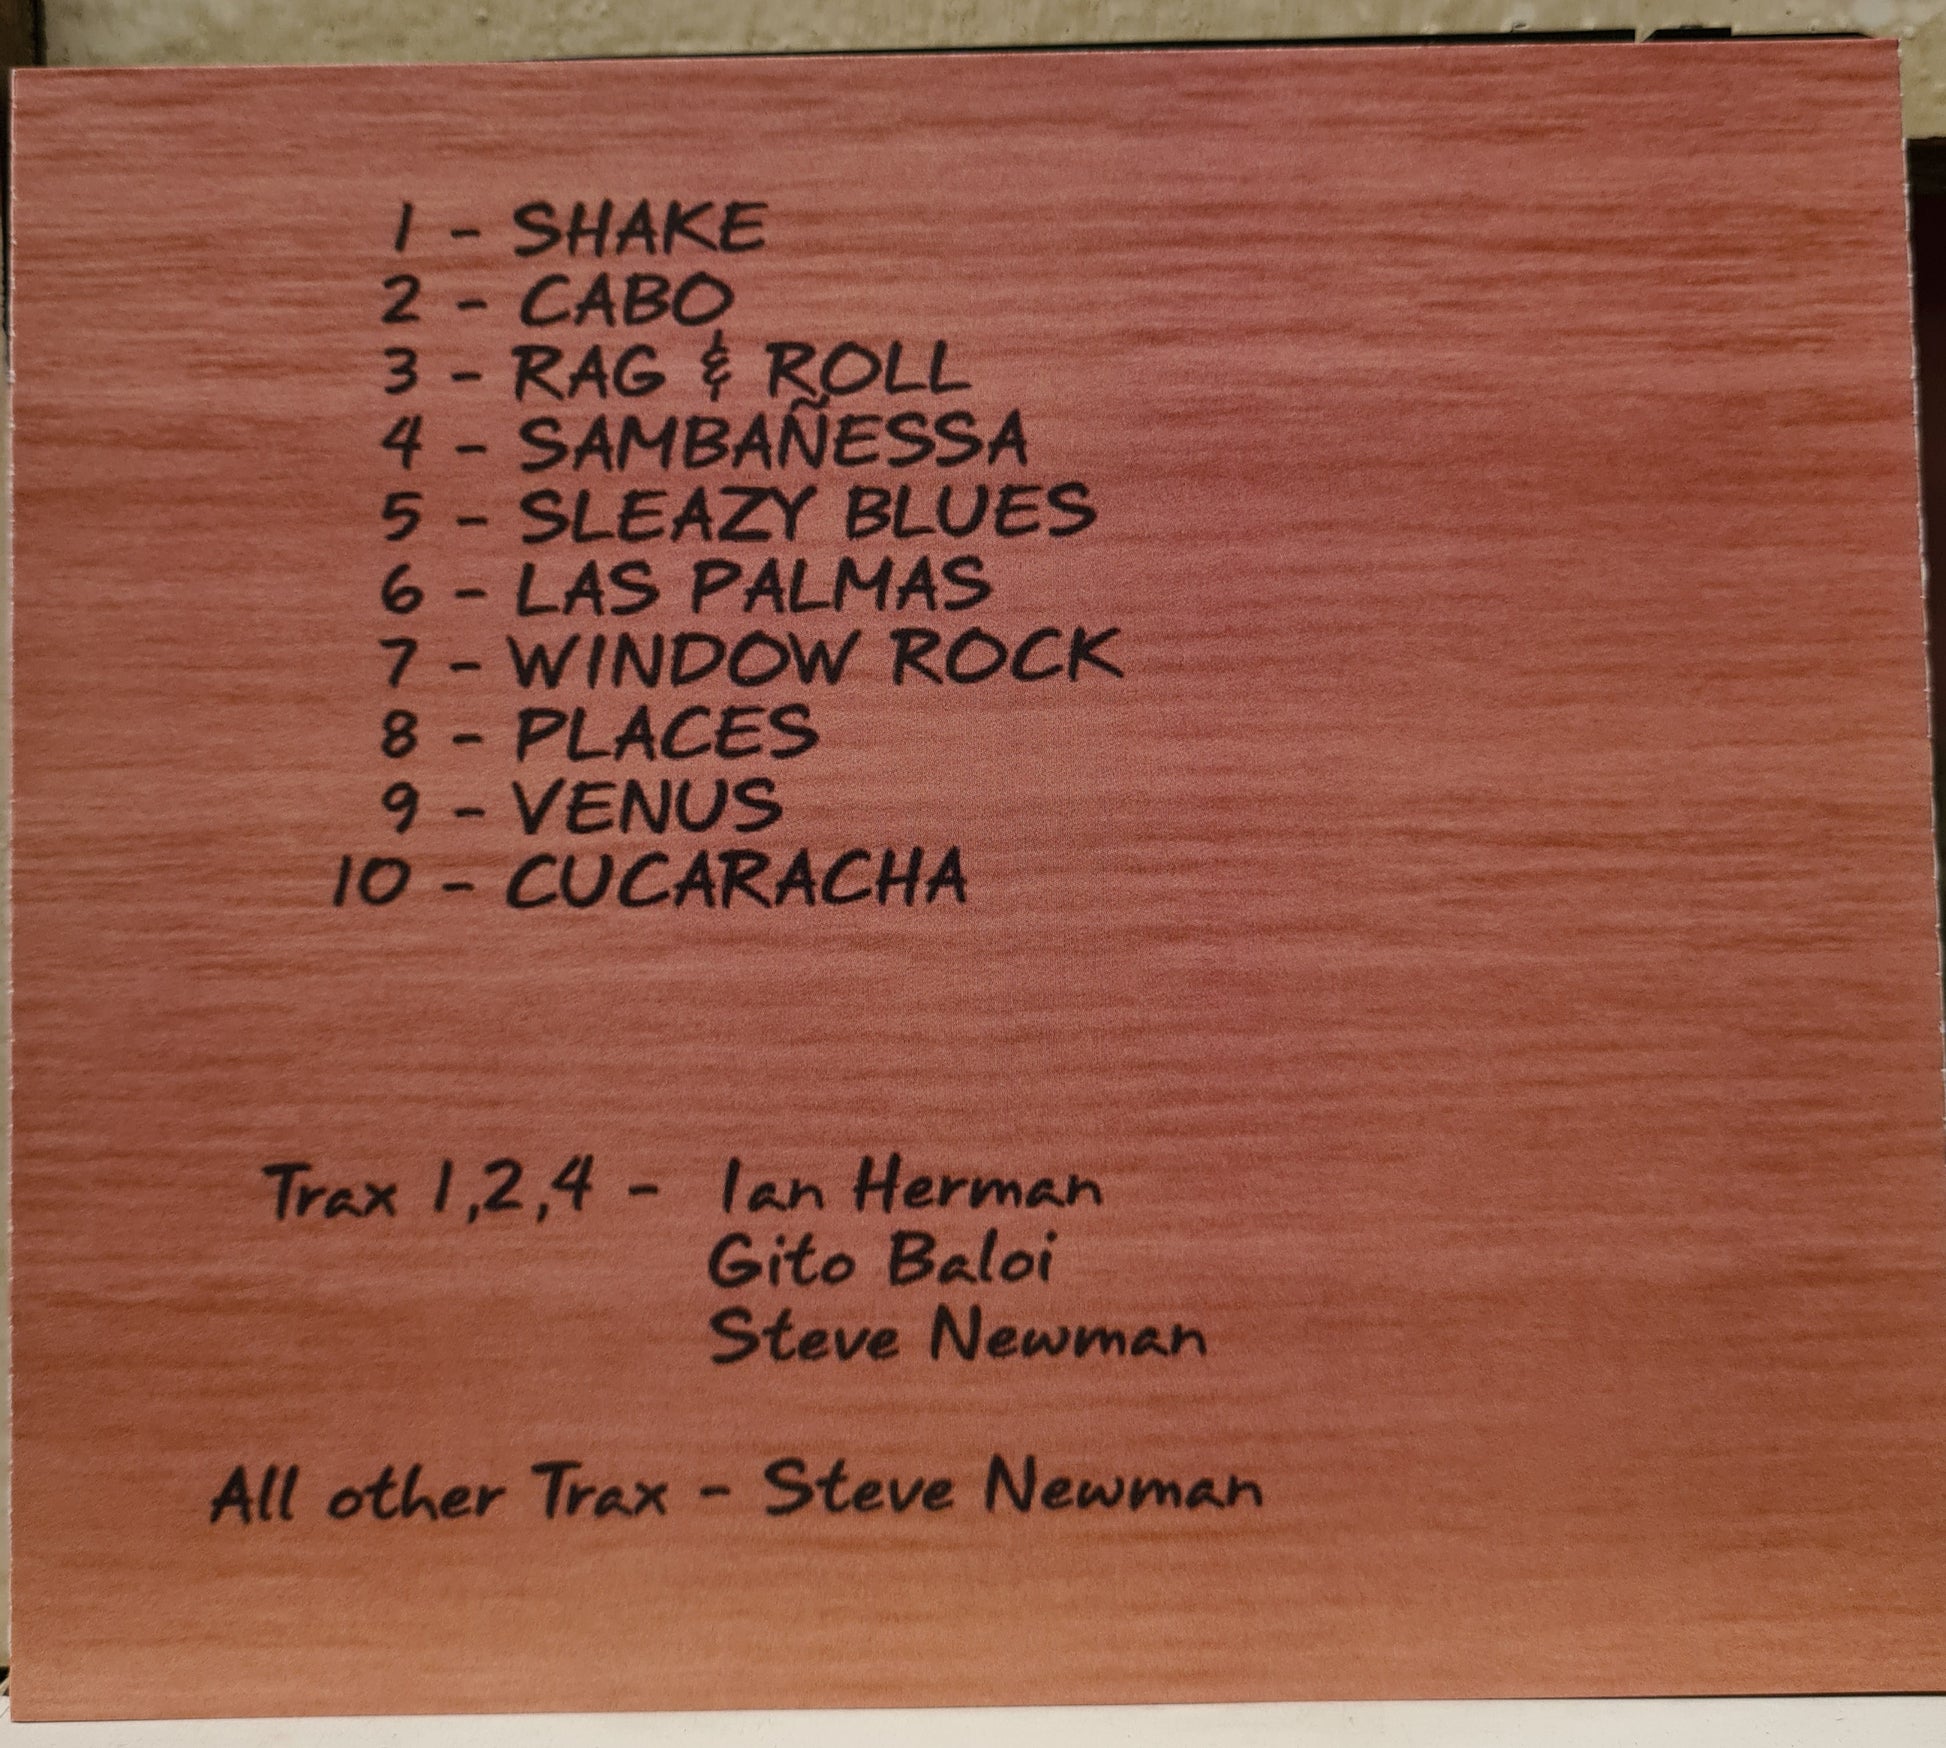 1 - SHAKE
2 - CABO
3 - RAG & ROLL
4 - SAMBAÑESSA
5 - SLEAZY BLUES
6 - LAS PALMAS
7 - WINDOW ROCK
8 - PLACES
9 - VENUS
10 - CUCARACHA
Trax 1,2,4 - Ian Herman
Gito Baloi
Steve Newman
All other Trax - Steve Newman